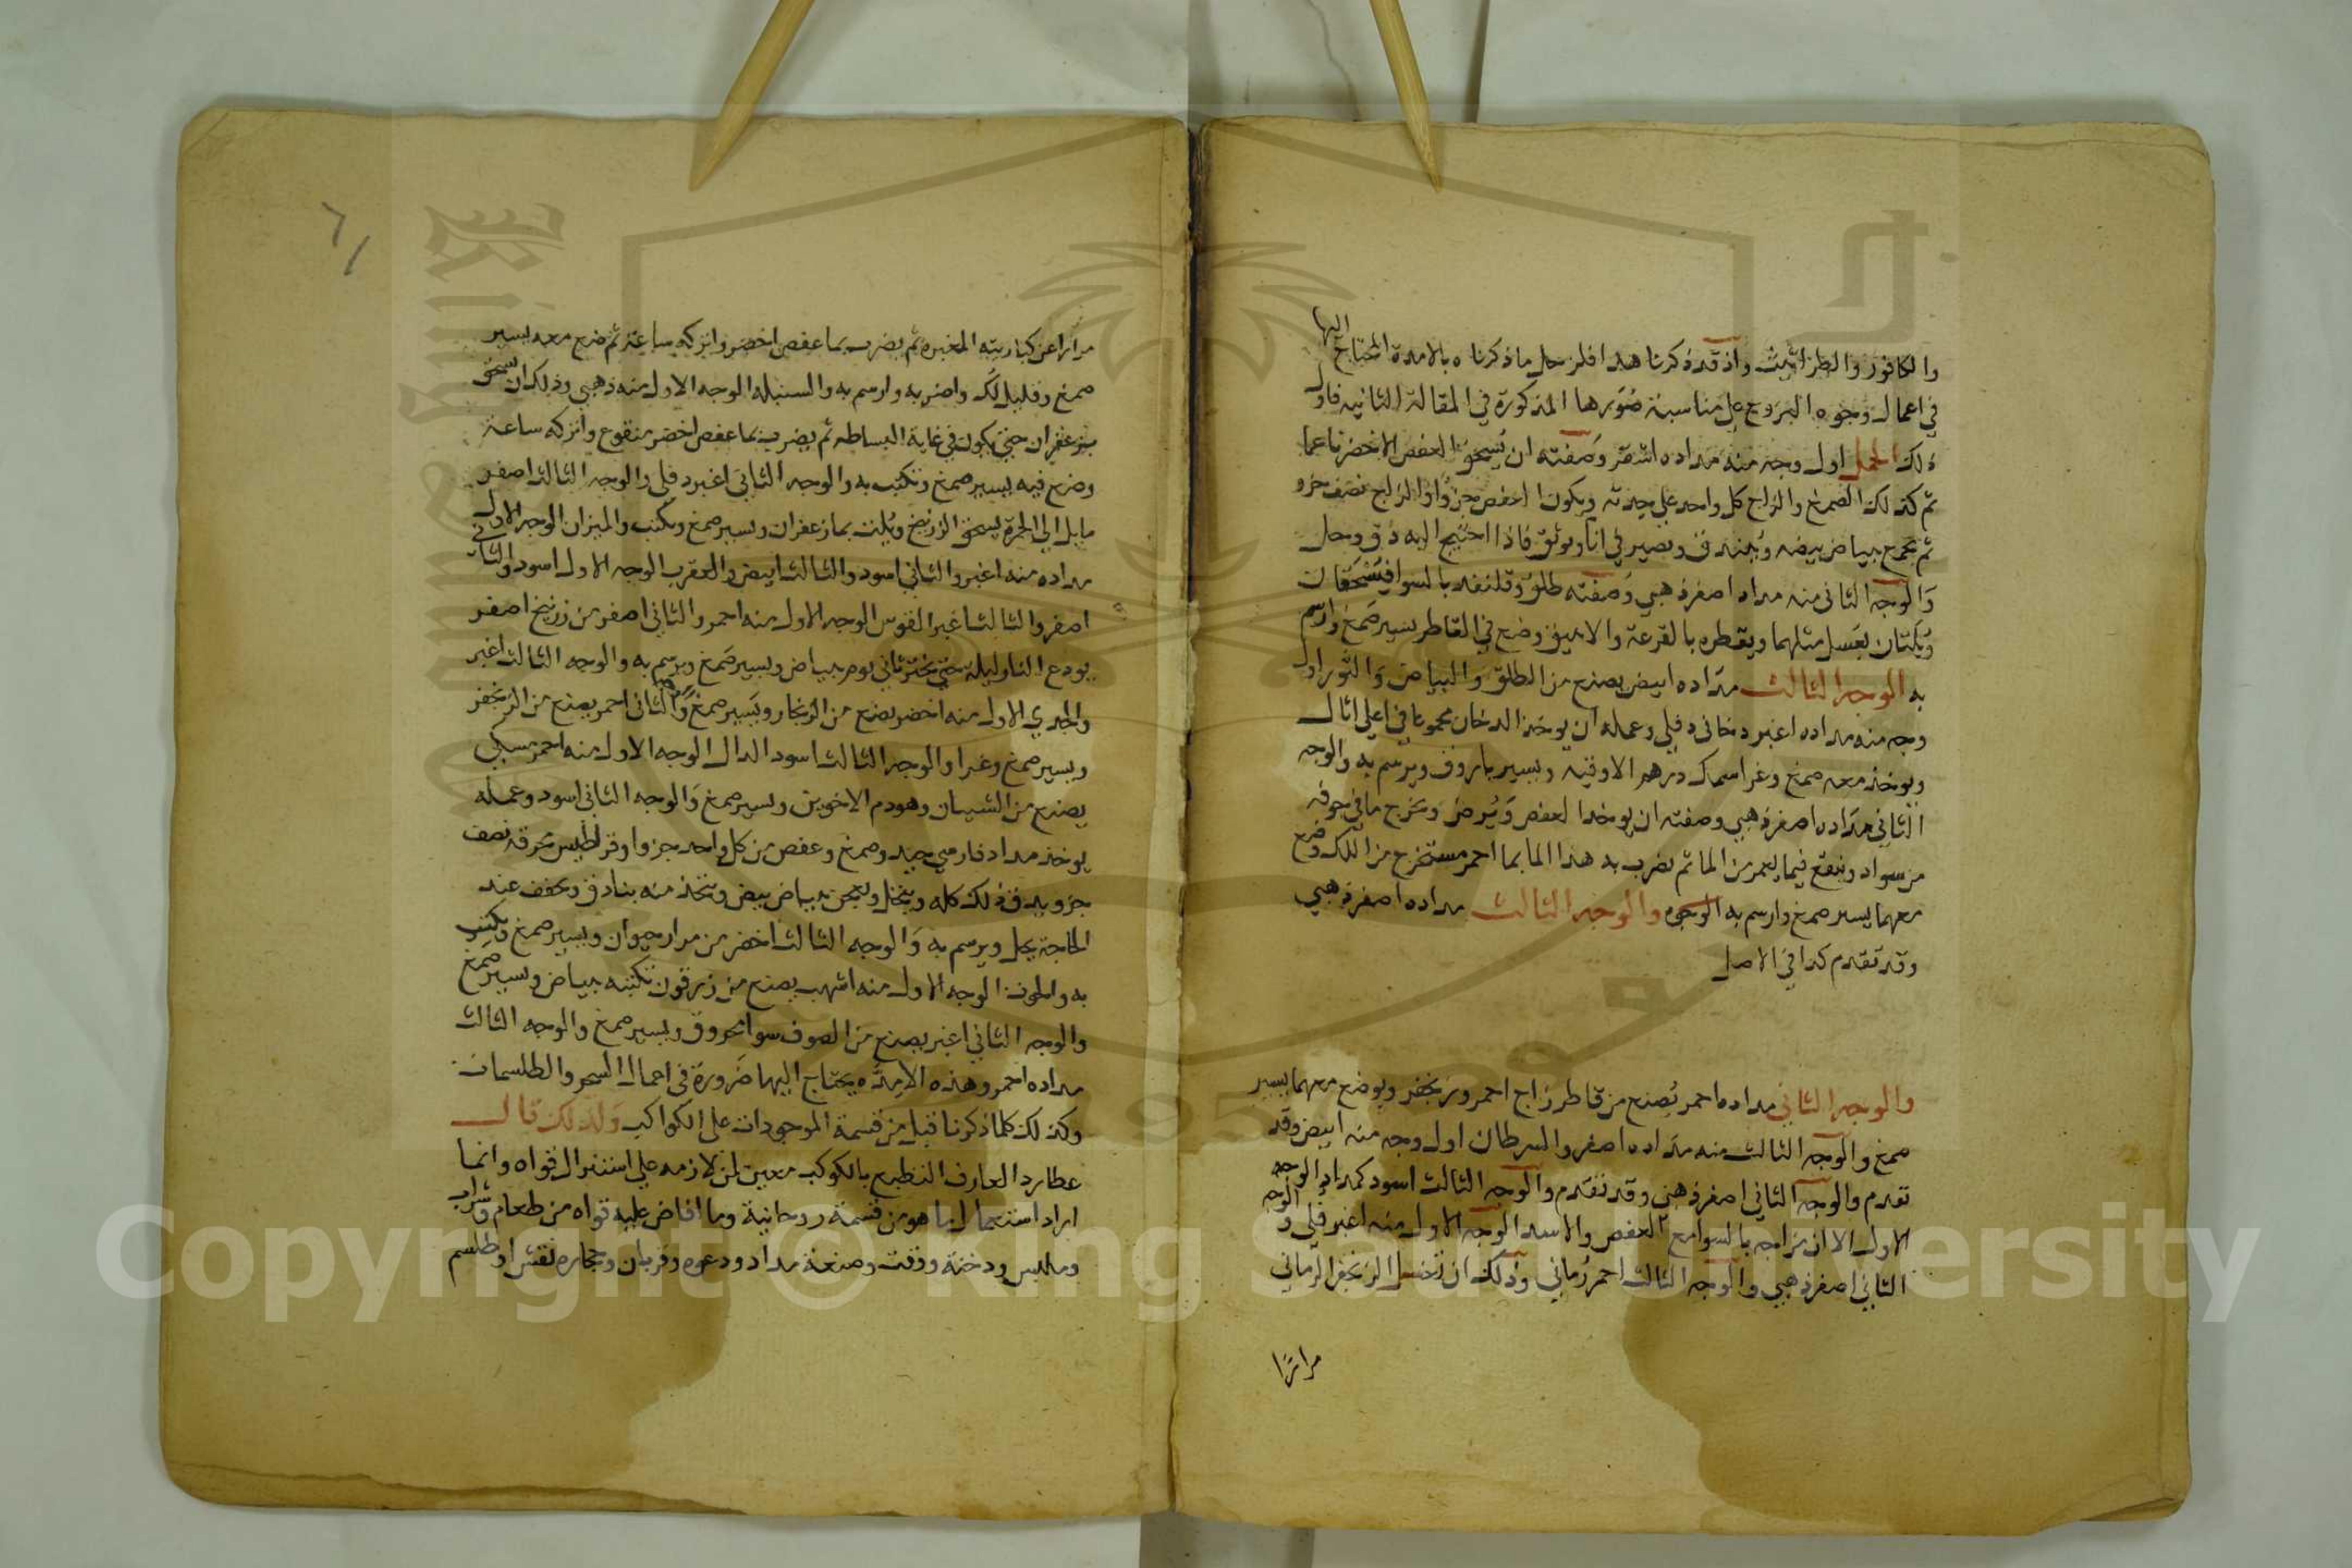 والكافور والطراثيث واذ قد ذكرنا هذا فلنرحل ماذكرناه بالامدة المحتاج اليها
في اعمال وجوه البروج على مناسبة صورها المذكورة في المقالة الثانيه فاول
ذلك الحمل اول وجه منه مداده اشقر وصفته ان يسحق العفص الاخضر ناعما
ثم كذلك الصمغ والزاج كل واحد على حدته ويكون العفص جزوا والزاج نصف جزو
ثم يجمع ببياض بيضه ويبندق ويصير في انا ويوثق فاذا احتيج اليه دق وحل
والوجه الثاني منه مداد اصفر ذهبي وصفته طلق وقلنفد بالسوا فيسحقان
ويلتان بعسل مثلهما ويقطره بالقرعة والانبيق وضع في القاطر يسير صمغ وارسم
به الوجه الثالث مداده ابيض يصنع من الطلق والبياض والثور اول
وجه منه مداده اغبر دخاني دفلي وعمله ان يوخذ الدخان مجموعا في اعلى اثال
ويوخذ معه صمغ وغرا سمك درهم الاوقيه ويسير باروق ويرسم به والوجه
الثاني مداده اصفر ذهبي وصفته ان يوخذ العفص ويرض ويخرج ما في جوفه
من سواد وينقع فيما يغمر من الما ثم يضرب به هذا الما بما احمر مستخرج من اللك وضع
معهما يسير صمغ وارسم به الوجوه والوجه الثالث مداده اصفر ذهبي
وقد تقدم كذا في الاصل
والوجه الثاني مداده احمر يصنع من قاطر زاج احمر وزنجفر ويوضع معهما يسير
صمغ والوجه الثالث منه مداده اصفر والسرطان اول وجه منه ابيض وقد
تقدم والوجه الثاني اصفر ذهبي وقد تقدم والوجه الثالث اسود كمداد الوجه
الاول الا ان زاجه بالسوا مع العفص والاسد الوجه الاول منه اغبر فلي والوجه
الثاني اصفر ذهبي والوجه الثالث احمر رماني وذلك ان تغسل الزنجفر الرماني
مرارا
٦١
مرارا عن كباريته المغبره ثم يضرب بما عفص اخضر واتركه ساعة ثم ضع معه يسير
صمغ وقليل لك واضربه وارسم به والسنبله الوجه الاول منه ذهبي وذلك ان تسحق
بزعفران حتى يكون في غاية البساطه ثم يضرب بما عفص اخضر منقوع واتركه ساعة
وضع فيه يسير صمغ وتكتب به والوجه الثاني اغبر دفلي والوجه الثالث اصفر
مايل الي الحمرة يسحق الزرنيخ ويلت بما زعفران ويسير صمغ ويكتب والميزان الوجه الاول
مداده منه اغبر والثاني اسود والثالث ابيض والعقرب الوجه الاول اسود والثاني
اصفر والثالث اغبر القوس الوجه الاول منه احمر والثاني اصفر من زرنيخ اصفر
يودع النار ليلة حتى يخثر ثاني يوم ببياض ويسير صمغ ويرسم به والوجه الثالث اغبر
والجدي الاول منه اخضر يصنع من الزنجار ويسير صمغ والثاني احمر يصنع من الزنجفر
ويسير صمغ وغرا والوجه الثالث اسود الدال الوجه الاول منه احمر مسكي
يصنع من الشيان وهو دم الاخوين ويسير صمغ والوجه الثاني اسود وعمله
يوخذ مداد فارسي جيد وصمغ وعفص من كل واحد جزو اوقراطيس محرقه نصف
جزو يدق ذلك كله وينخل ويعجن ببياض بيض ويتخذ منه بنادق ويجفف عند
الحاجة يحل ويرسم به والوجه الثالث اخضر من مرار حيوان ويسير صمغ ويكتب
به والحوت الوجه الاول منه اشهب يصنع من زرقون تكتبه ببياض ويسير صمغ
والوجه الثاني اغبر يصنع من الصوف سوا محروق ويسير صمغ والوجه الثالث
مداده احمر وهذه الامده يحتاج اليها ضرورة في اعمال السحر والطلسمات
وكذلك كلما ذكرنا قبل من قسمة الموجودات على الكواكب ولذلك قال
عطارد العارف التطبع بالكوكب معين لمن لازمه على استنزال قواه وانما
اراد استعمال ما هو من قسمة روحانية وما افاض عليه قواه من طعام وشراب
وملبس ودخنة ووقت وصنعة مداد ودعوه وقربان وحجاره نقش او طلسم